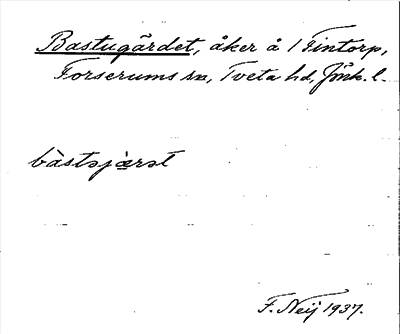 Bastugärdet, åker å 1 Fintorp,
Forserums sn, Tveta hd, Jönk. l.
bàstəjæ̀rət
F. Neij 1937.